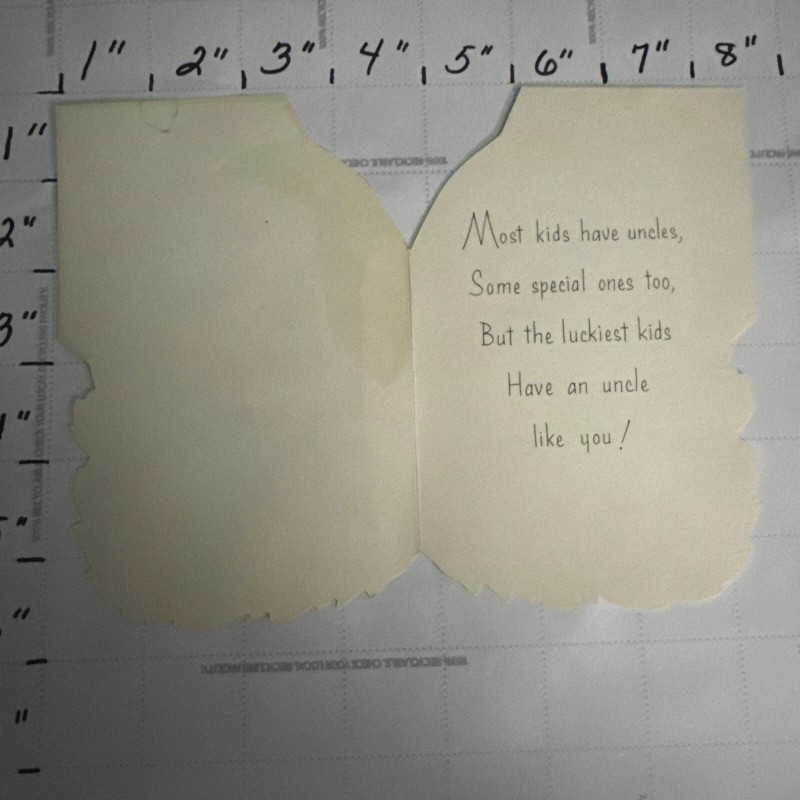 1" 2" 3" 4" 5" 6" 7" 8"
1"
2"
3"
Most kids have uncles,
Some special ones too,
But the luckiest kids
Have an uncle
like you!